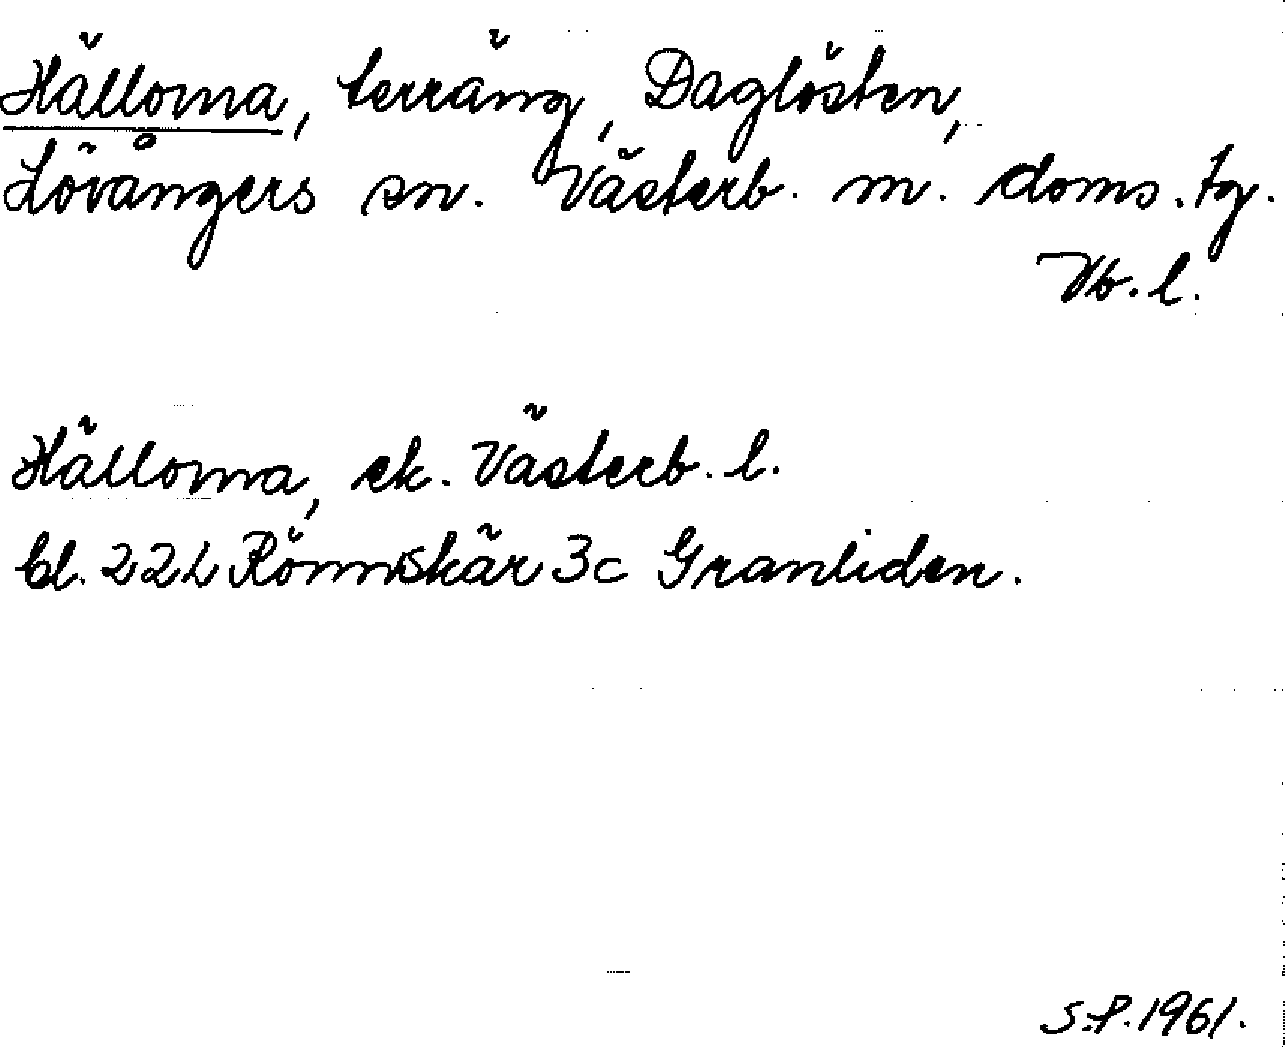 Hälloma, terräng, Daglösten,
Lövångers sn. Västerb. m. doms. tg.
Vb. l.
Hälloma, ek. Västerb. l.
bl. 22L Rönnskär 3c Granliden.
S.P. 1961.